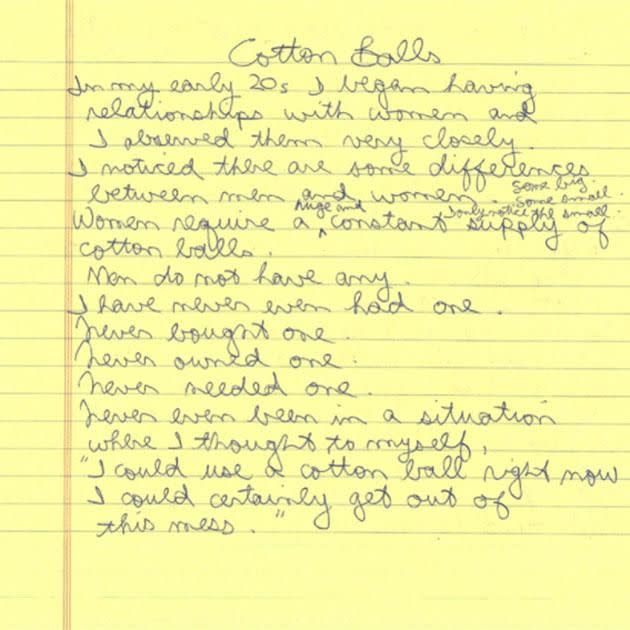 Cotton Balls
In my early 20s I began having
relationships with women and
I observed them very closely.
I noticed there are some differences
between men and women. Some big.
Some small.
I only notice the small.
Women require a huge and constant supply of
cotton balls.
Men do not have any.
I have never even had one.
Never bought one.
Never owned one.
Never needed one.
Never even been in a situation
where I thought to myself,
"I could use a cotton ball right now
I could certainly get out of
this mess."